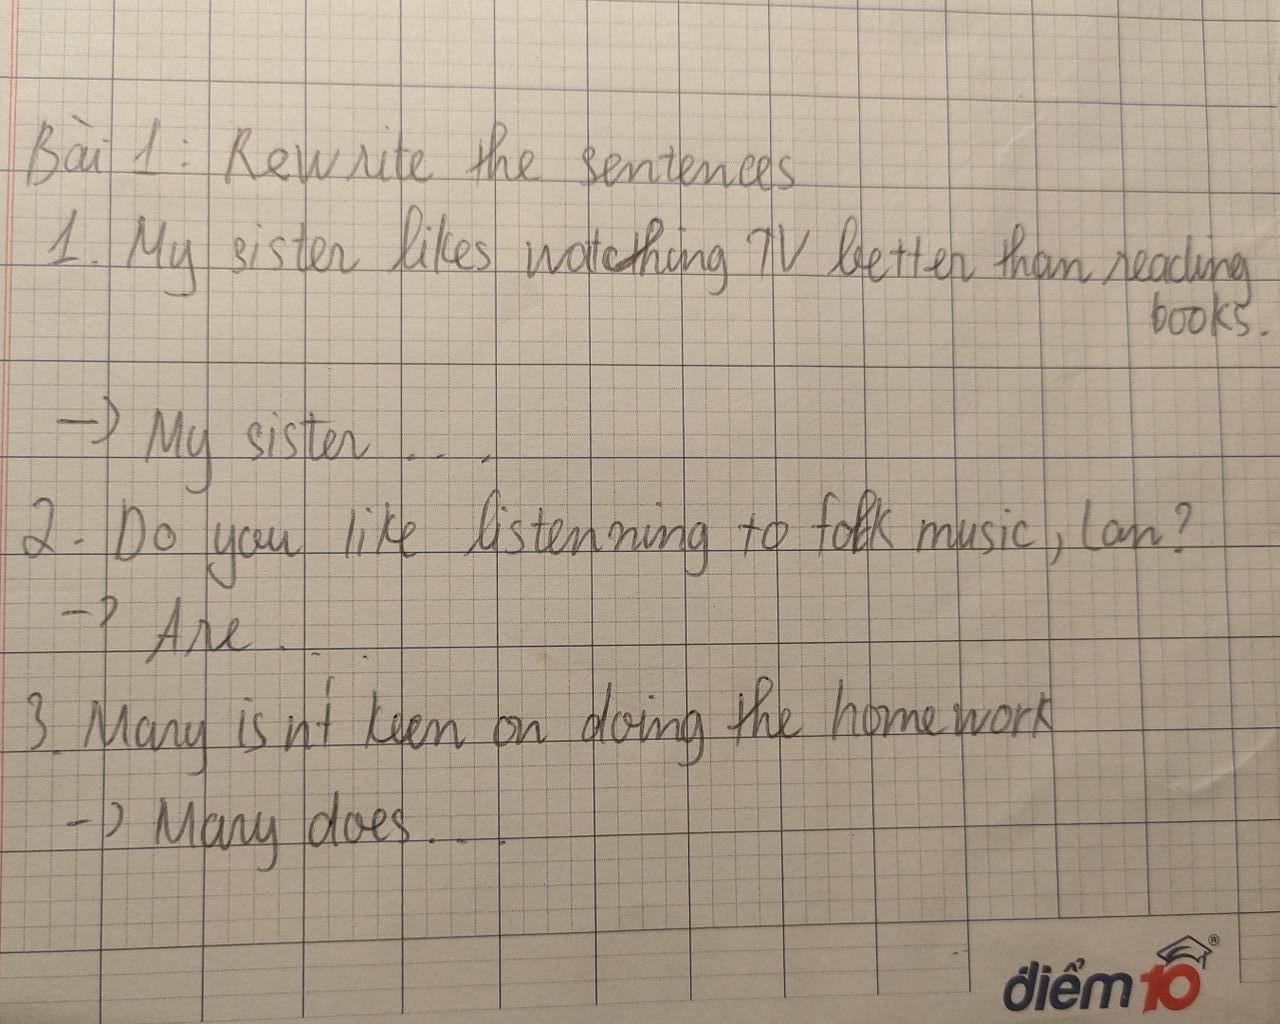 Bài 1: Rewrite the sentences
1. My sister likes watching TV better than reading
books.
-> My sister ....
2. Do you like listenning to folk music, Lan?
-> Are ...
3. Mary isn't keen on doing the homework
-> Mary does ....
điểm 10®